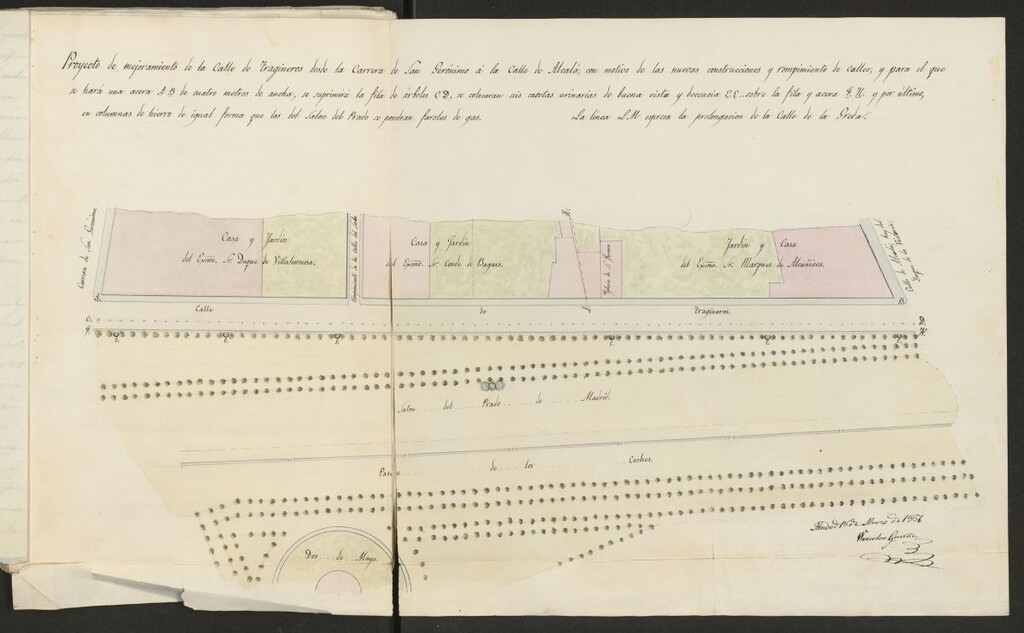 Proyecto de mejoramiento de la Calle de Tragineros desde la Carrera de San Gerónimo á la Calle de Alcalá, con motivo de las nuevas construcciones y rompimiento de calles, y para el que
se hará una acera A B de cuatro metros de ancha, se suprimirá la fila de árboles C D, se colocaran seis casetas urinarias de buena vista y decencia E.E. sobre la fila y acera F. H. y por último,
en columnas de hierro de igual forma que las del Salon del Prado se pondran faroles de gas. La línea L.M. espresa la prolongacion de la Calle de la Greda.
Carrera de San Gerónimo
Casa y Jardin
del Excmo. Sr. Duque de Villahermosa.
Rompimiento de la Calle del
Casa y Jardin
del Excmo. Sr. Conde de
M.
Iglesia de S. Fermin
Jardin y Casa
del Excmo. Sr. Marques de Alcañices.
Calle de Alcalá
A.
B.
Calle de Tragineros.
L.
C.
D.
F.
H.
Salon del Prado de Madrid.
Paseo de los Coches.
Dos de Mayo.
Madrid 18 de Marzo de